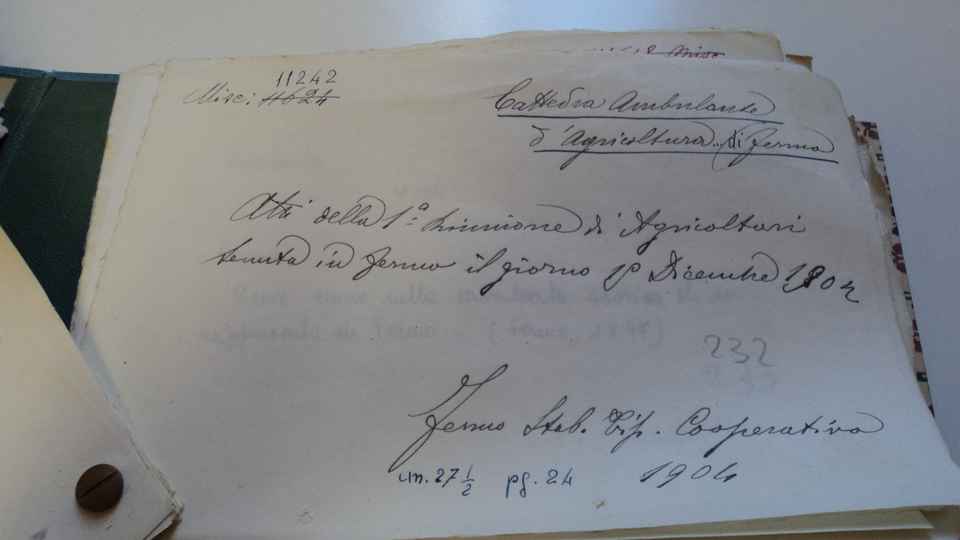 11242
Misc: 4624
Cattedra Ambulante
d'Agricoltura di Fermo
Atti della 1ª Riunione di Agricoltori
tenuta in Fermo il giorno 1º Dicembre 1904
232
Fermo Stab. Tip. Cooperativa
cm. 27 1/2 pg. 24 1904